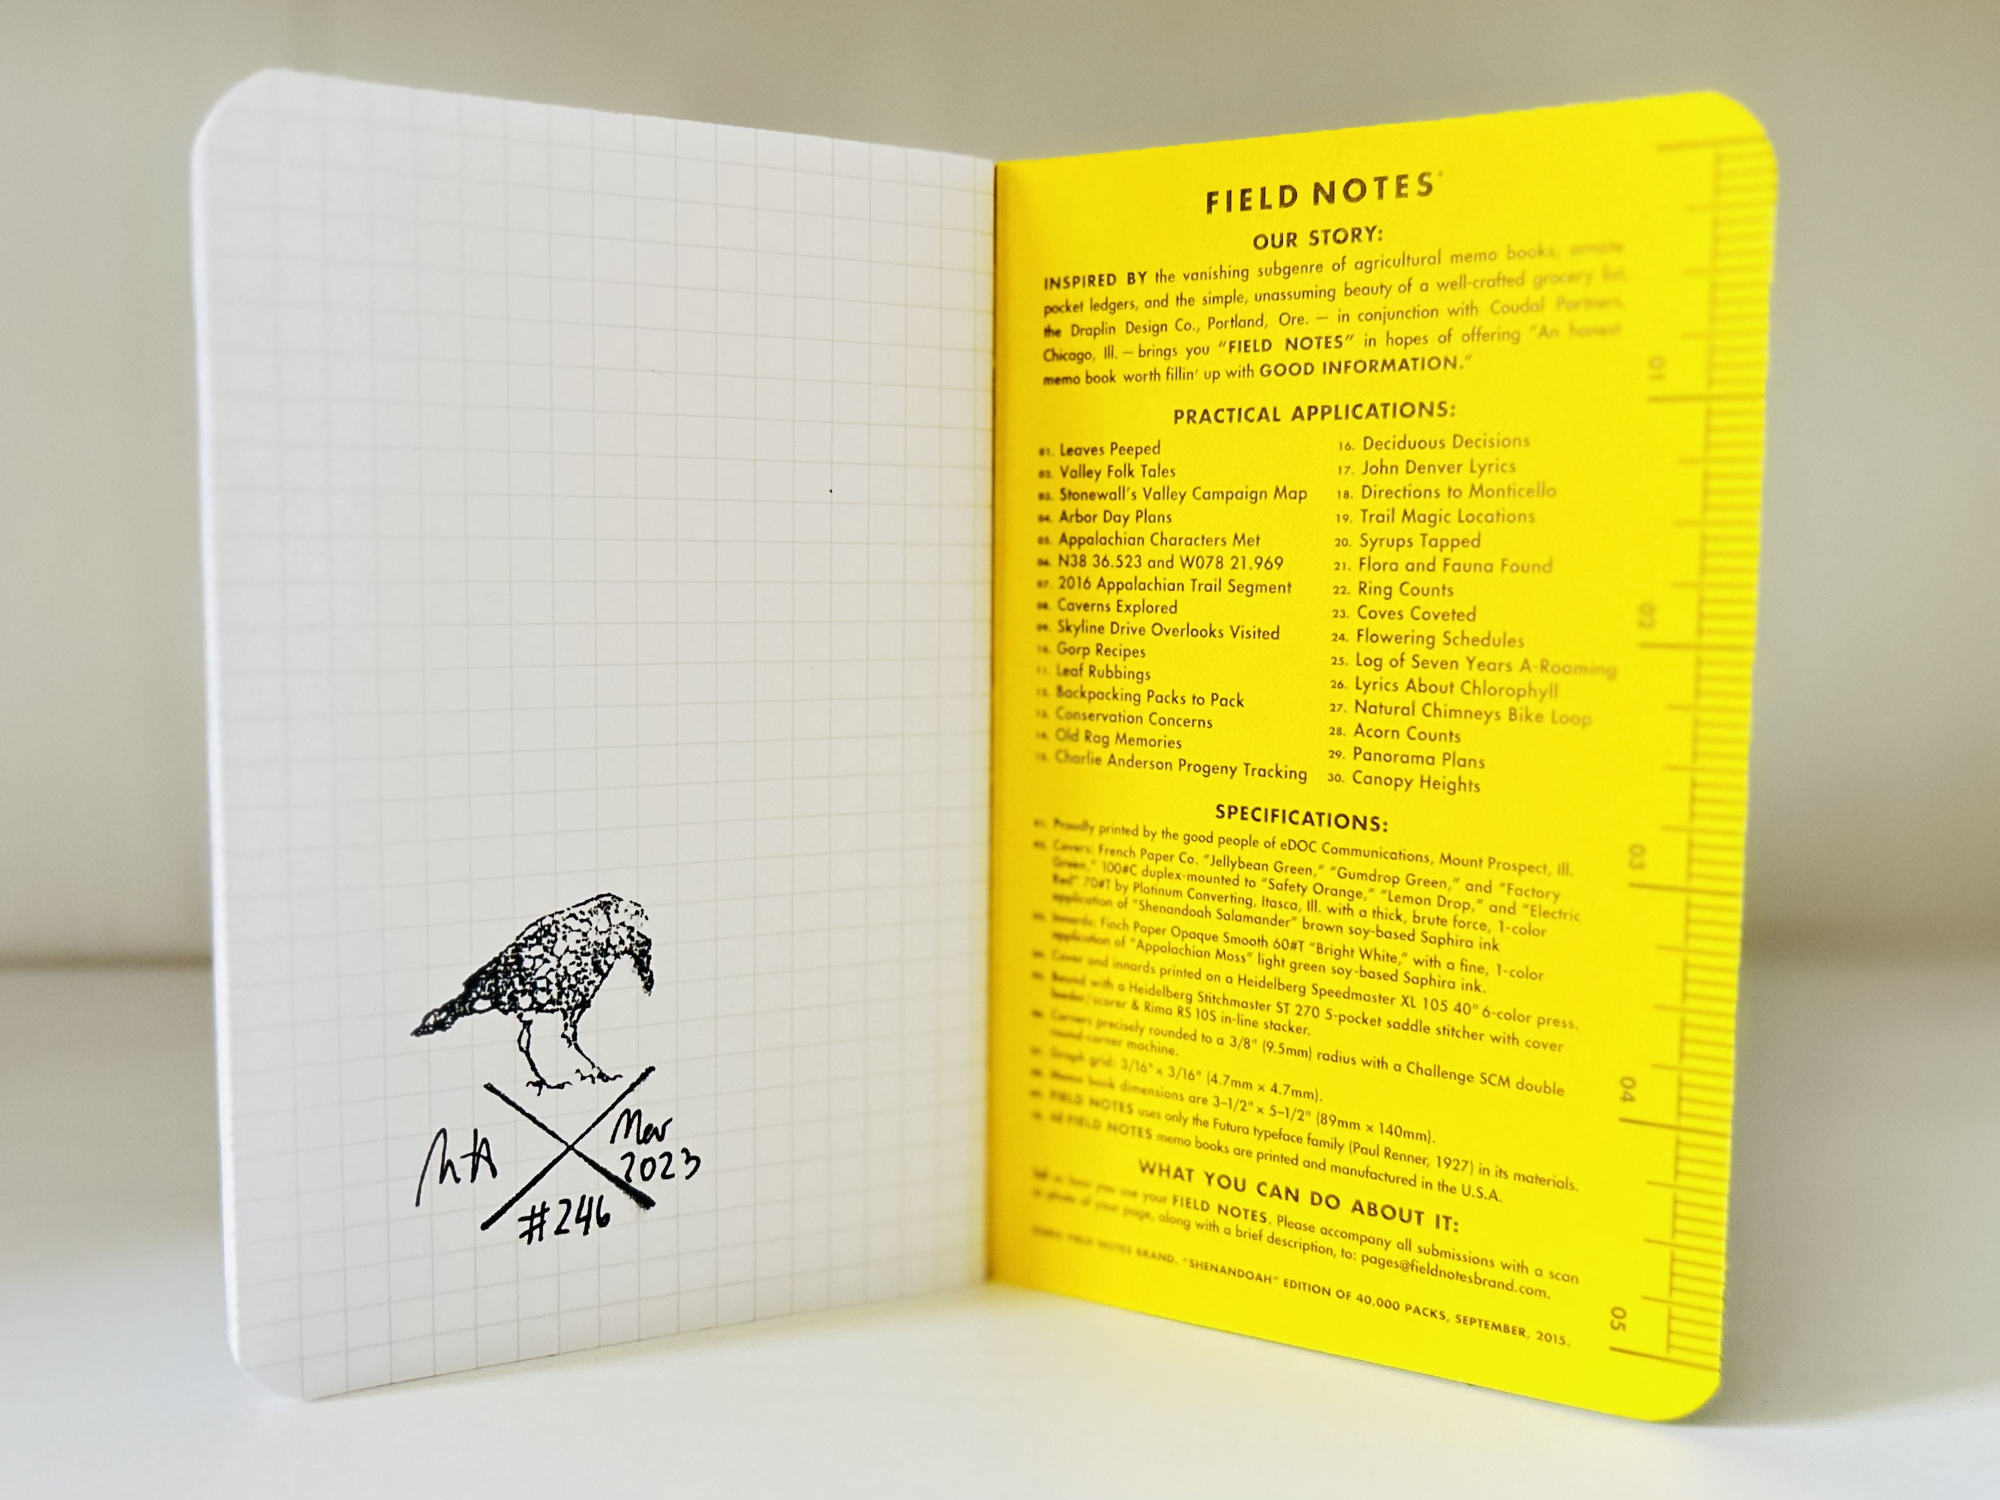 MA
Mar
2023
#246
FIELD NOTES
OUR STORY:
INSPIRED BY the vanishing subgenre of agricultural memo books, ornate
pocket ledgers, and the simple, unassuming beauty of a well-crafted grocery list,
the Draplin Design Co., Portland, Ore. — in conjunction with Coudal Partners,
Chicago, Ill. — brings you "FIELD NOTES" in hopes of offering "An honest
memo book worth fillin' up with GOOD INFORMATION."
PRACTICAL APPLICATIONS:
01. Leaves Peeped
02. Valley Folk Tales
03. Stonewall's Valley Campaign Map
04. Arbor Day Plans
05. Appalachian Characters Met
06. N38 36.523 and W078 21.969
07. 2016 Appalachian Trail Segment
08. Caverns Explored
09. Skyline Drive Overlooks Visited
10. Gorp Recipes
11. Leaf Rubbings
12. Backpacking Packs to Pack
13. Conservation Concerns
14. Old Rag Memories
15. Charlie Anderson Progeny Tracking
16. Deciduous Decisions
17. John Denver Lyrics
18. Directions to Monticello
19. Trail Magic Locations
20. Syrups Tapped
21. Flora and Fauna Found
22. Ring Counts
23. Coves Coveted
24. Flowering Schedules
25. Log of Seven Years A-Roaming
26. Lyrics About Chlorophyll
27. Natural Chimneys Bike Loop
28. Acorn Counts
29. Panorama Plans
30. Canopy Heights
SPECIFICATIONS:
01. Proudly printed by the good people of eDOC Communications, Mount Prospect, Ill.
02. Covers: French Paper Co. "Jellybean Green," "Gumdrop Green," and "Factory
Green," 100#C duplex-mounted to "Safety Orange," "Lemon Drop," and "Electric
Red" 70#T by Platinum Converting, Itasca, Ill. with a thick, brute force, 1-color
application of "Shenandoah Salamander" brown soy-based Saphira ink
03. Innards: Finch Paper Opaque Smooth 60#T "Bright White," with a fine, 1-color
application of "Appalachian Moss" light green soy-based Saphira ink.
04. Cover and innards printed on a Heidelberg Speedmaster XL 105 40" 6-color press.
05. Bound with a Heidelberg Stitchmaster ST 270 5-pocket saddle stitcher with cover
feeder/scorer & Rima RS 10S in-line stacker.
06. Corners precisely rounded to a 3/8" (9.5mm) radius with a Challenge SCM double
round-corner machine.
07. Graph grid: 3/16" x 3/16" (4.7mm x 4.7mm).
08. Memo book dimensions are 3-1/2" x 5-1/2" (89mm x 140mm).
09. FIELD NOTES uses only the Futura typeface family (Paul Renner, 1927) in its materials.
10. All FIELD NOTES memo books are printed and manufactured in the U.S.A.
WHAT YOU CAN DO ABOUT IT:
Tell us how you use your FIELD NOTES. Please accompany all submissions with a scan
or photo of your page, along with a brief description, to: pages@fieldnotesbrand.com.
FIELD NOTES BRAND. "SHENANDOAH" EDITION OF 40,000 PACKS, SEPTEMBER, 2015.
01
02
03
04
05